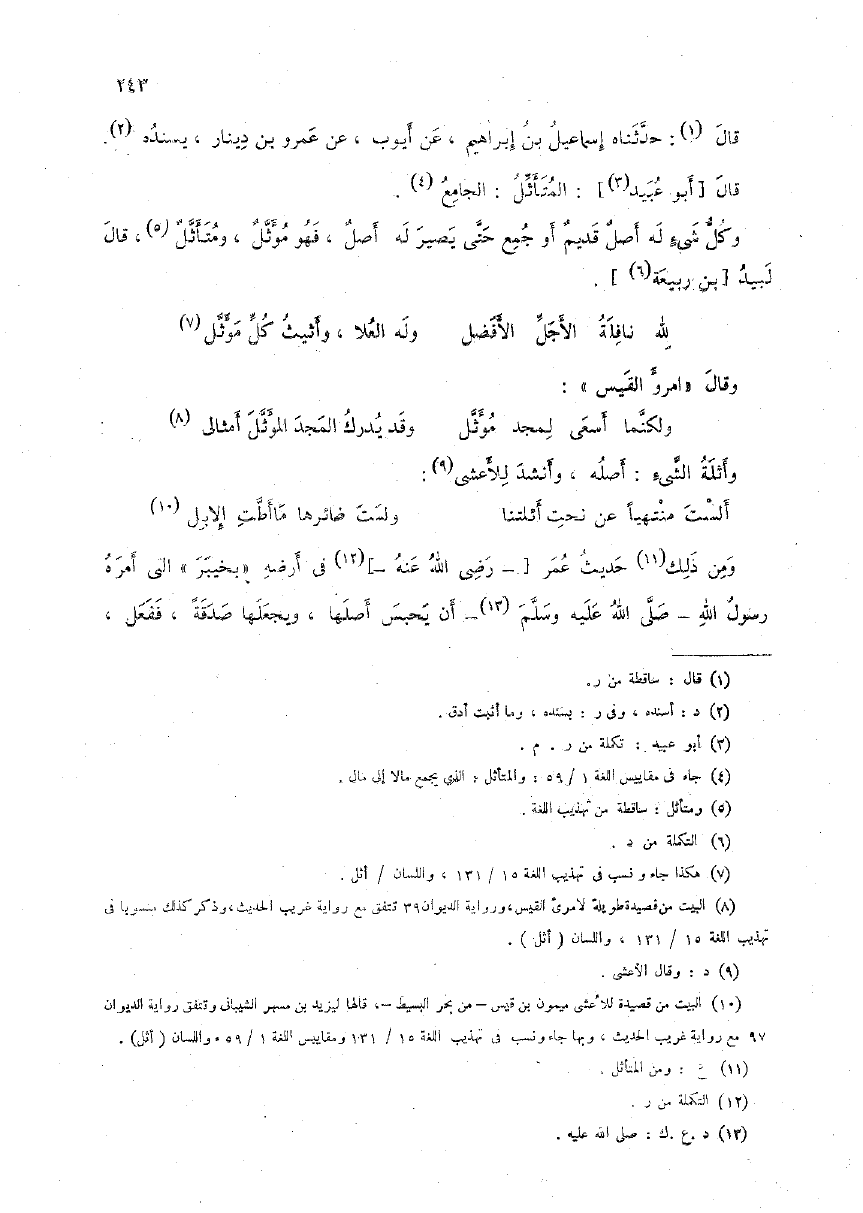 ٢٤٣
قالَ (١) : حدَّثَناه إسماعيلُ بنُ إبراهيم ، عَن أَيوب ، عن عَمرو بن دِينار ، يسندُه (٢) .
قالَ [ أَبو عُبَيد(٣) ] : المُتَأَثِّلُ : الجامِعُ (٤) .
وكُلُّ شَىءٍ لَه أَصلٌ قَديمٌ أَو جُمِع حَتَّى يَصيرَ لَه أَصلٌ ، فَهُو مُؤَثَّلٌ ، ومُتَأَثَّلٌ (٥) ، قالَ
لَبيدُ [ بنِ ربيعَة(٦) ] .
للهِ نافِلَةُ الأَجَلِّ الأَفْضل ولَه العُلا ، وأَثيثُ كُلِّ مَوَثَّل (٧)
وقالَ « امروُّ القَيس » :
ولكنَّما أَسعَى لِمجد مُؤَثَّل وقَد يُدركُ المَجدَ المُوَثَّلَ أَمثالى (٨)
وأَثلَةُ الشَّىءِ : أَصلُه ، وأَنشدَ لِلأَعشى(٩) :
أَلسْتَ منْتهِياً عن نحتِ أَثلتنا ولسَتَ ضائرها مَاأَطَّتِ الإِبل (١٠)
وَمِن ذَلِك(١١) حَديثُ عُمَر [ – رَضِى اللهُ عَنهُ –](١٢) فى أَرضهِ «بخيبَرَ» التى أَمرَهُ
رسولُ اللهِ – صَلَّى اللهُ عَلَيه وسَلَّمَ (١٣)– أَن يَحبسَ أَصلَها ، ويجعَلَها صَدَقَةً ، فَفَعَل ،
(١) قال : ساقطة من ر.
(٢) د : أسنده ، وفى ر : بسنده ، وما أثبت أدق .
(٣) أبو عبيد : تكملة من ر . م .
(٤) جاء فى مقاييس اللغة ١ / ٥٩ : والمتأثل : الذي يجمع مالا إلى مال .
(٥) ومتأثل : ساقطة من تهذيب اللغة .
(٦) التكملة من د .
(٧) هكذا جاء و نسب فى تهذيب اللغة ١٥ / ١٣١ ، واللسان / أثل .
(٨) البيت من قصيدة طويلة لامرئ القيس،ورواية الديوان ٣٩ تتفق مع رواية غريب الحديث،وذكر كذلك منسوبا فى
تهذيب اللغة ١٥ / ١٣١ ، واللسان ( أثل ) .
(٩) د : وقال الأعشى .
(١٠) البيت من قصيدة للأعشى ميمون بن قيس – من بحر البسيط –، قالها ليزيد بن مسهر الشيبانى وتتفق رواية الديوان
٩٧ مع رواية غريب الحديث ، وبها جاء ونسب فى تهذيب اللغة ١٥ / ١٣١ ومقاييس اللغة ١ / ٥٩ ، واللسان ( أثل) .
(١١) ع : ومن المتأثل .
(١٢) التكملة من ر .
(١٣) د .ع .ك : صلى الله عليه .